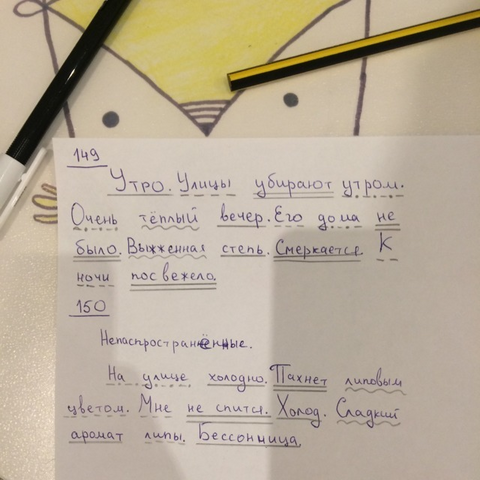 149
Утро. Улицы убирают утром.
Очень тёплый вечер. Его дома не
было. Выжженная степь. Смеркается. К
ночи посвежело.
150
Непаспространённые.
На улице холодно. Пахнет липовым
цветом. Мне не спится. Холод. Сладкий
аромат липы. Бессонница.